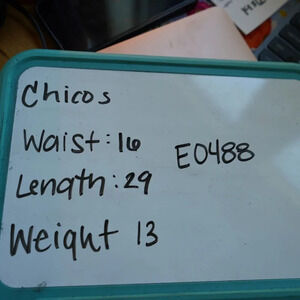 Chicos
Waist: 16
E0488
Length: 29
Weight 13